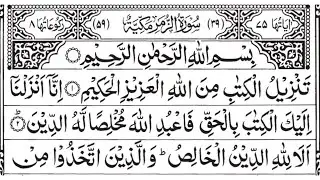 اٰیَاتُهَا ٧٥ (٣٩) سُوْرَةُ الزُّمَرِ مَكِّيَّةٌ (٥٩) رُكُوْعَاتُهَا ٨
بِسْمِ اللّٰهِ الرَّحْمٰنِ الرَّحِيْمِ
تَنْزِيْلُ الْكِتٰبِ مِنَ اللّٰهِ الْعَزِيْزِ الْحَكِيْمِ ۝١ اِنَّاۤ اَنْزَلْنَاۤ
اِلَيْكَ الْكِتٰبَ بِالْحَقِّ فَاعْبُدِ اللّٰهَ مُخْلِصًا لَّهُ الدِّيْنَ ۝٢
اَلَا لِلّٰهِ الدِّيْنُ الْخَالِصُ ؕ وَالَّذِيْنَ اتَّخَذُوْا مِنْ